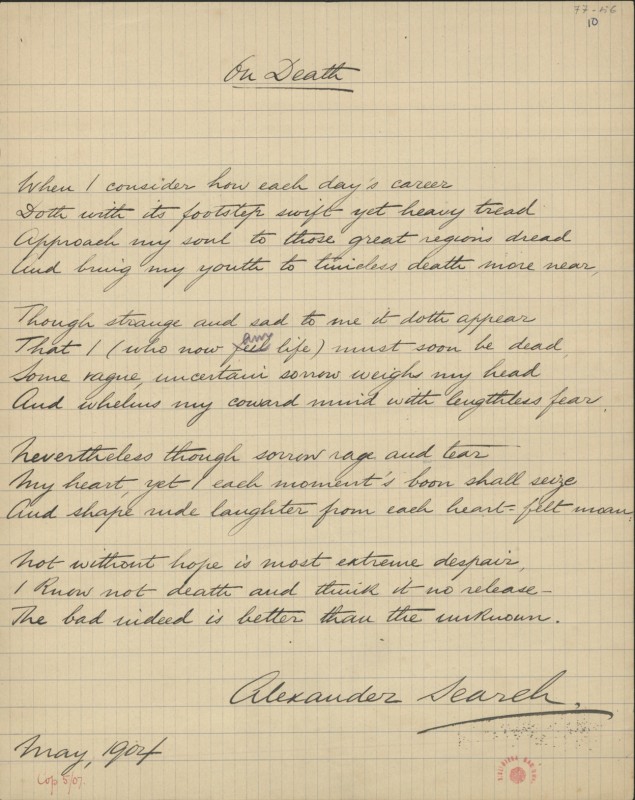 77-66
10
On Death
When I consider how each day's career
Doth with its footstep swift yet heavy tread
Approach my soul to those great regions dread
And bring my youth to timeless death more near,
Though strange and sad to me it doth appear
any
That I (who now feel life) must soon be dead,
Some vague, uncertain sorrow weighs my head
And whelms my coward mind with lengthless fear.
Nevertheless though sorrow rage and tear
My heart, yet I each moment's boon shall seize
And shape rude laughter from each heart-felt moan.
Not without hope is most extreme despair,
I know not death and think it no release—
The bad indeed is better than the unknown.
Alexander Search.
May, 1904
Cop 5/07.